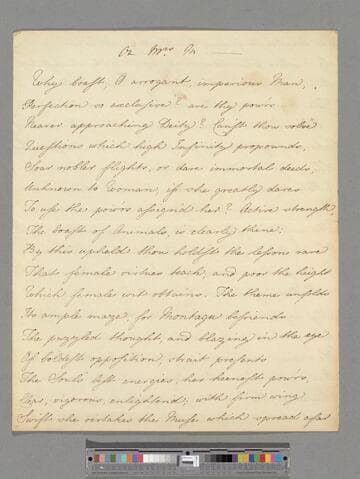 On Mrs. M.
Why boast, O arrogant, imperious Man,
Perfection so exclusive? are thy pow'rs
Nearer approaching Deity? Can'st thou solve
Questions which high Infinity propounds,
Soar nobler flights, or dare immortal deeds,
Unknown to Woman, if she greatly dares
To use the pow'rs assign'd her? Active strength,
The boast of Animals, is clearly thine;
By this upheld thou hold'st the lessons rare
That female virtues teach, and poor the height
Which female wit obtains. The theme unfolds
Its ample maze, for Montagu befriends
The puzzled thought, and blazing in the eye
Of boldest opposition, strait presents
The Soul's best energies, her keenest pow'rs,
Clear, vigorous, enlighten'd; with firm wing
Swift she o'ertakes the Muse which spread afar